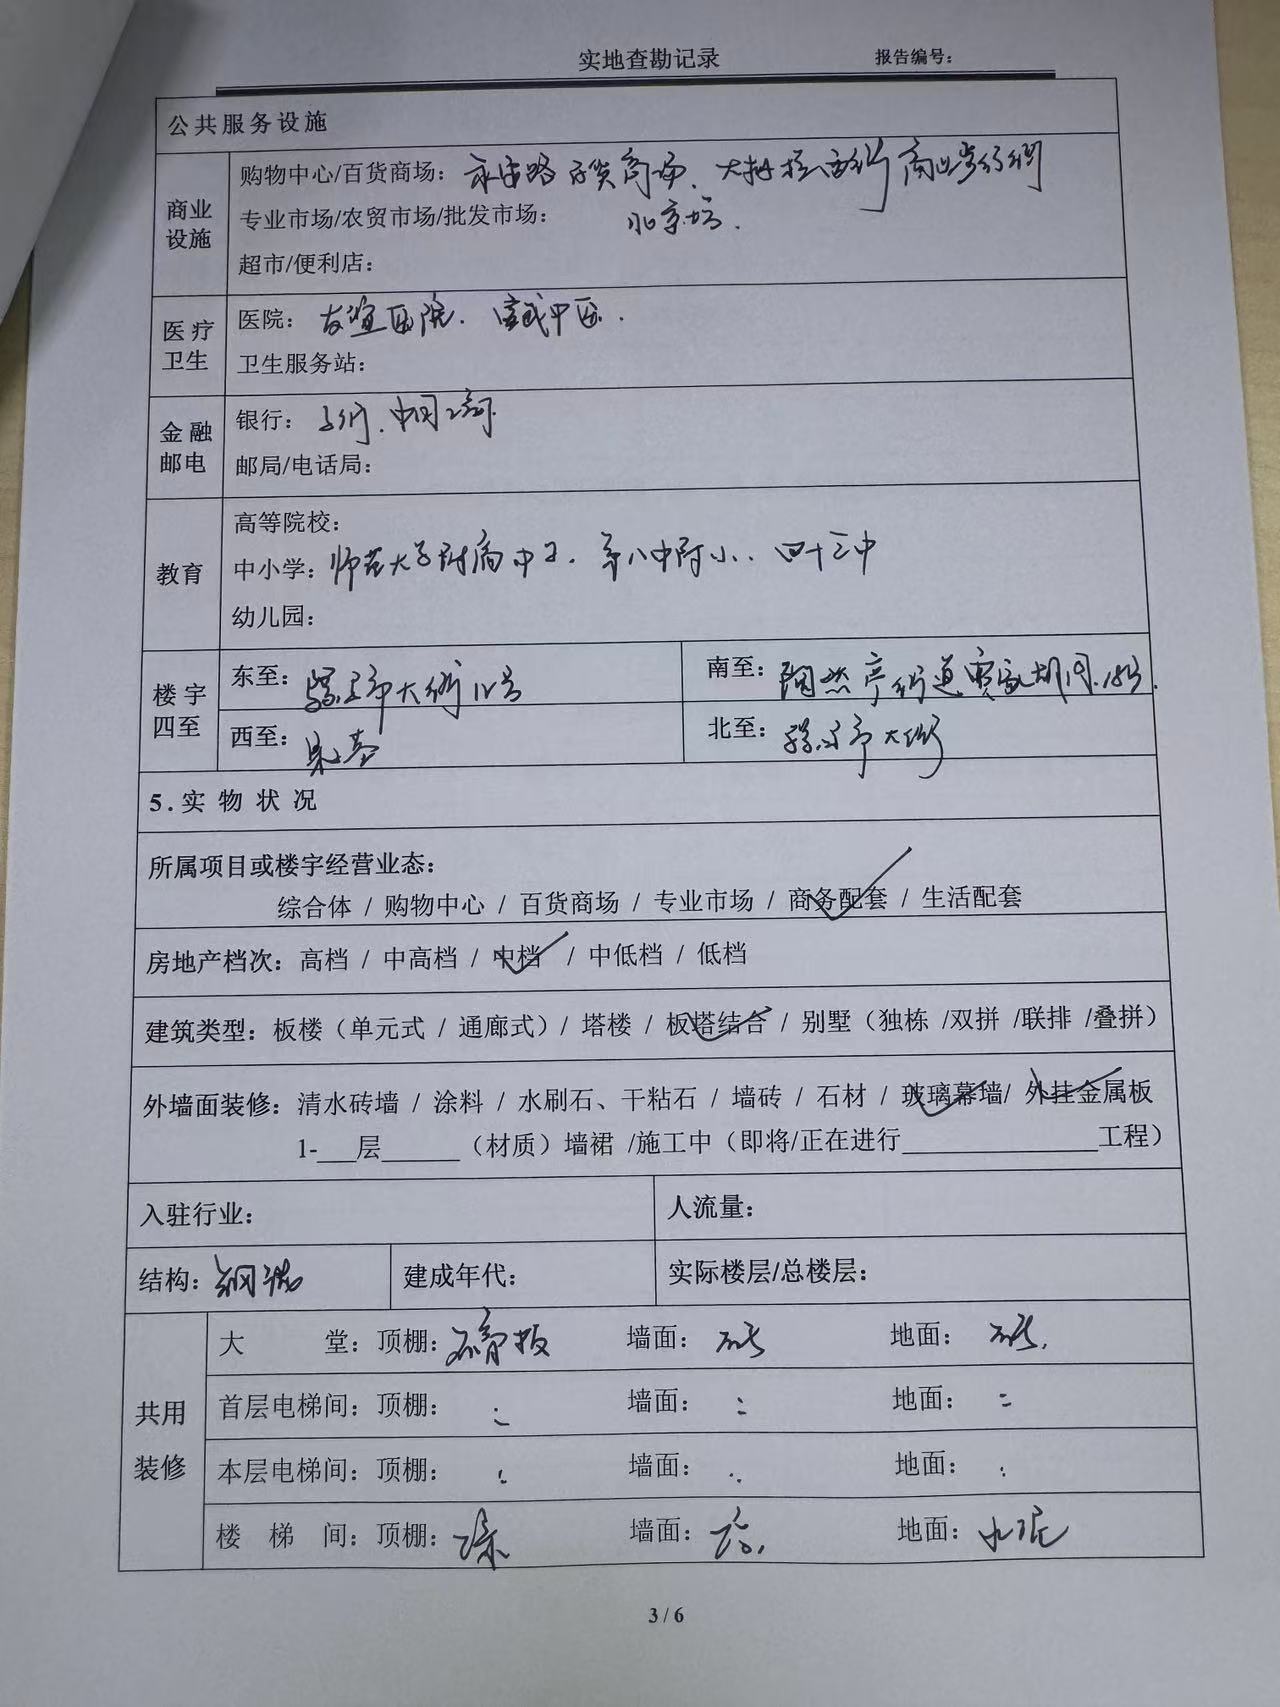 实地查勘记录 报告编号：
公共服务设施
商业设施
购物中心/百货商场：永安路百货商场、大栅栏西街商业步行街
专业市场/农贸市场/批发市场： 北京坊.
超市/便利店：
医疗卫生
医院：友谊医院. 宣武中医.
卫生服务站：
金融邮电
银行：工行、中国银行
邮局/电话局：
教育
高等院校：
中小学：师范大学附属中学. 八中附小. 四十三中
幼儿园：
楼宇四至
东至：骡马市大街12号 南至：陶然亭街道贾家胡同18号.
西至： 北至：骡马市大街
5.实物状况
所属项目或楼宇经营业态：
综合体 / 购物中心 / 百货商场 / 专业市场 / 商务配套 / 生活配套
房地产档次：高档 / 中高档 / 中档 / 中低档 / 低档
建筑类型：板楼（单元式 / 通廊式）/ 塔楼 / 板塔结合 / 别墅（独栋 /双拼 /联排 /叠拼）
外墙面装修：清水砖墙 / 涂料 / 水刷石、干粘石 / 墙砖 / 石材 / 玻璃幕墙/ 外挂金属板
1-___层______（材质）墙裙 /施工中（即将/正在进行_______________工程）
入驻行业： 人流量：
结构：钢混 建成年代： 实际楼层/总楼层：
共用装修
大 堂：顶棚：石膏板 墙面：砖 地面：砖.
首层电梯间：顶棚： 墙面： 地面：
本层电梯间：顶棚： 墙面： 地面：
楼 梯 间：顶棚：涂 墙面：涂. 地面：水泥
3 / 6